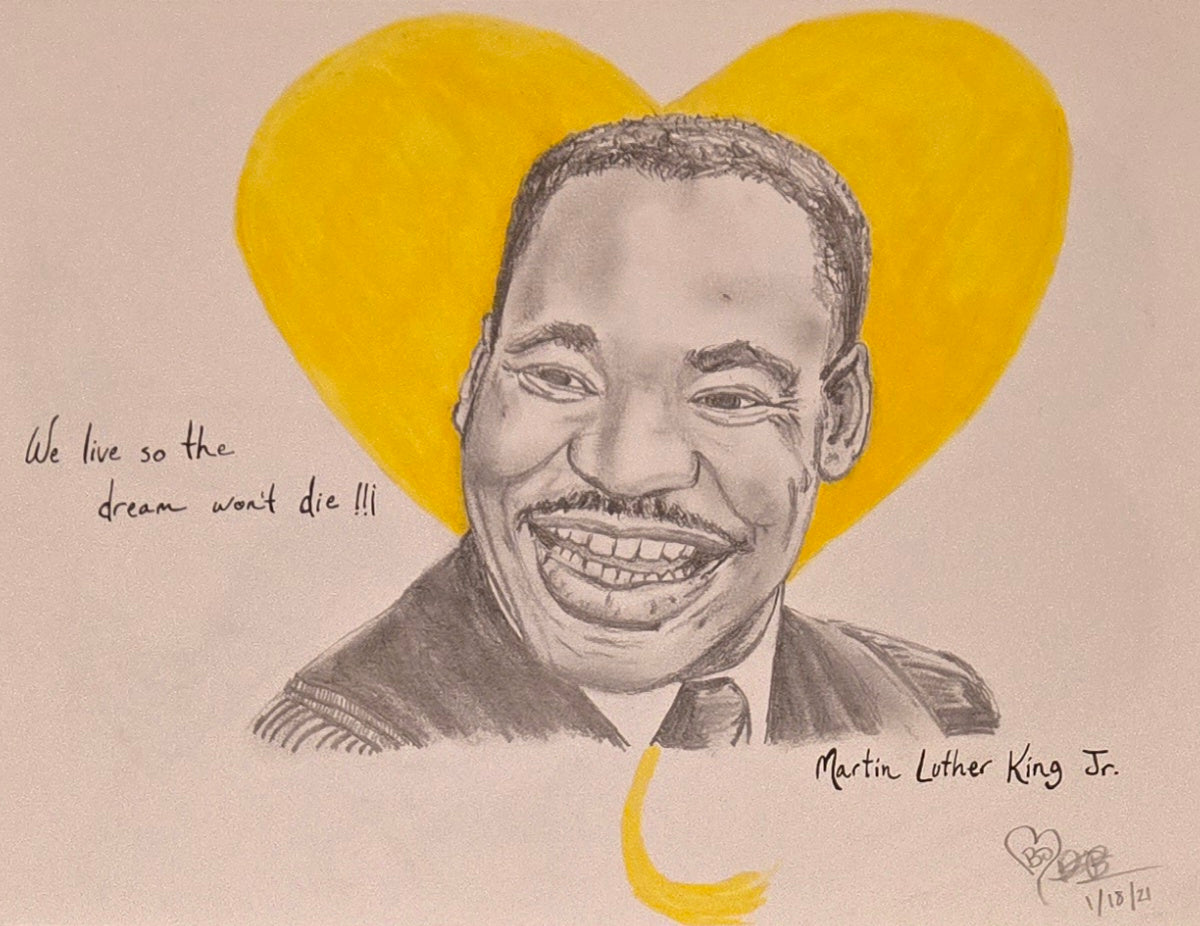 We live so the
dream won't die !!¡
Martin Luther King Jr.
Bo
1/18/21